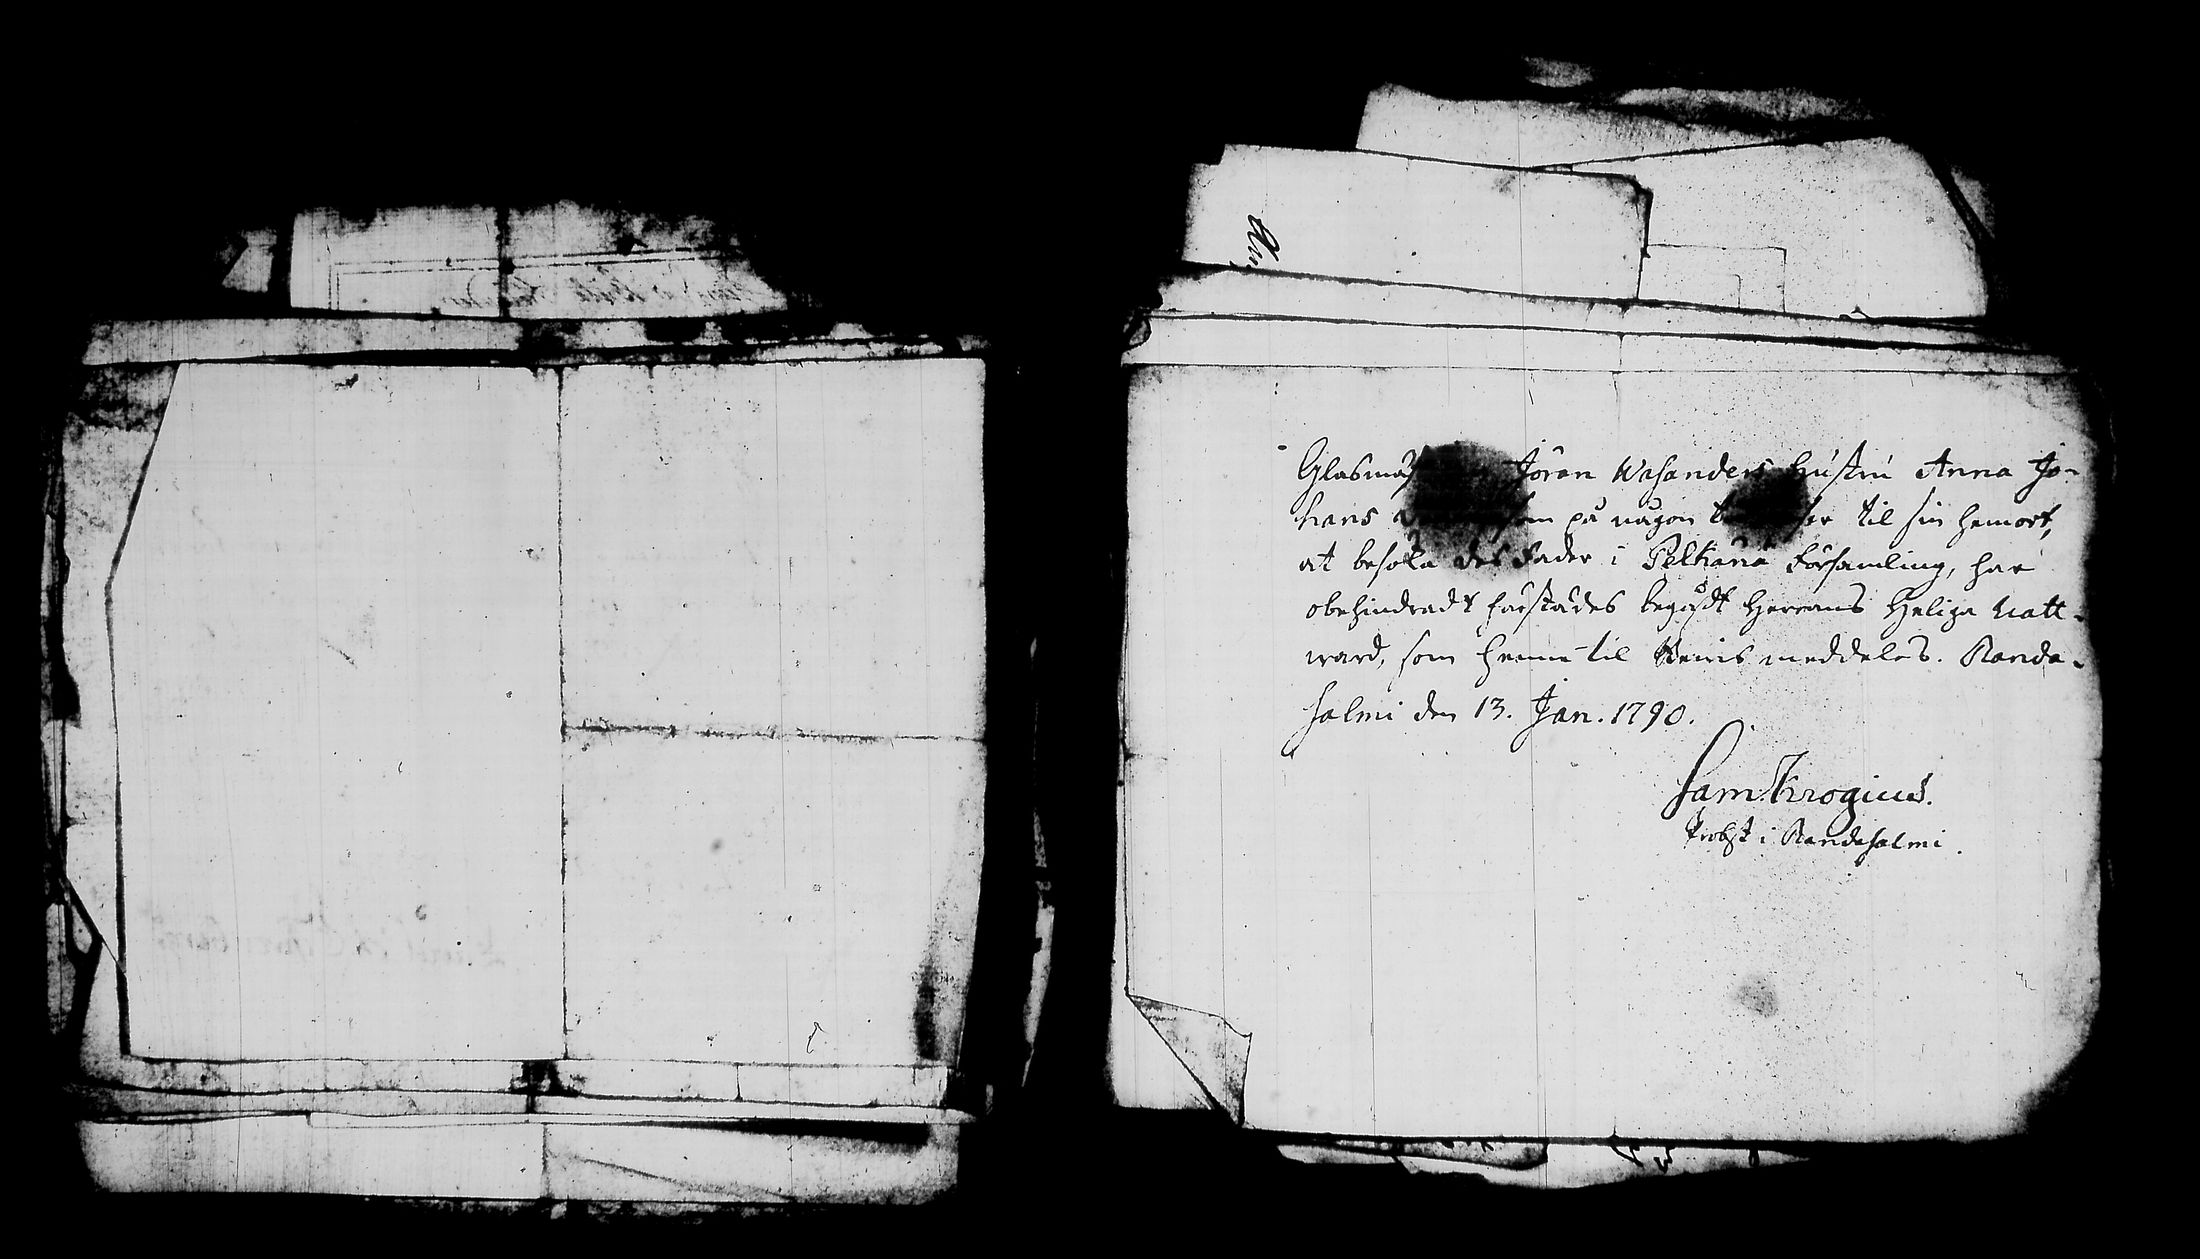 Glasmäs Jöran Wasanders Hustru Anna Jo-
hans som på någon til sin hemort,
at besöka des Fader i Pelkänä Församling, har
obehindradt härstädes begådt Herrans Heliga Natt-
ward, som henne til Bewis meddeles. Randa-
salmi den 13. Jan. 1790.
Sam. Krogius.
Probst i Randasalmi.